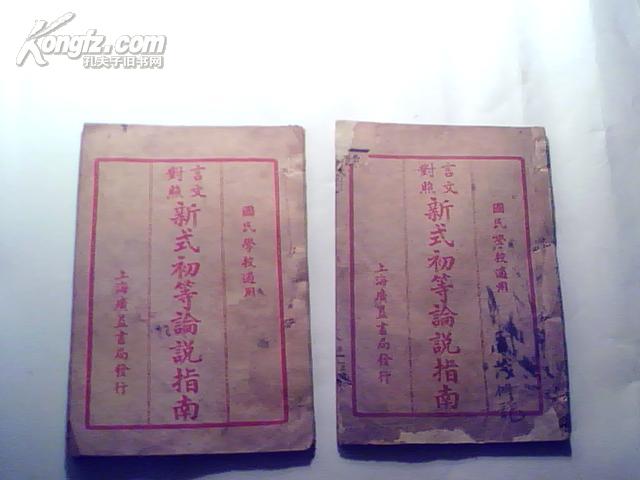 Kongfz.com
孔夫子旧书网
國民學校通用
言文對照
新式初等論說指南
上海廣益書局發行
國民學校通用
言文對照
新式初等論說指南
上海廣益書局發行